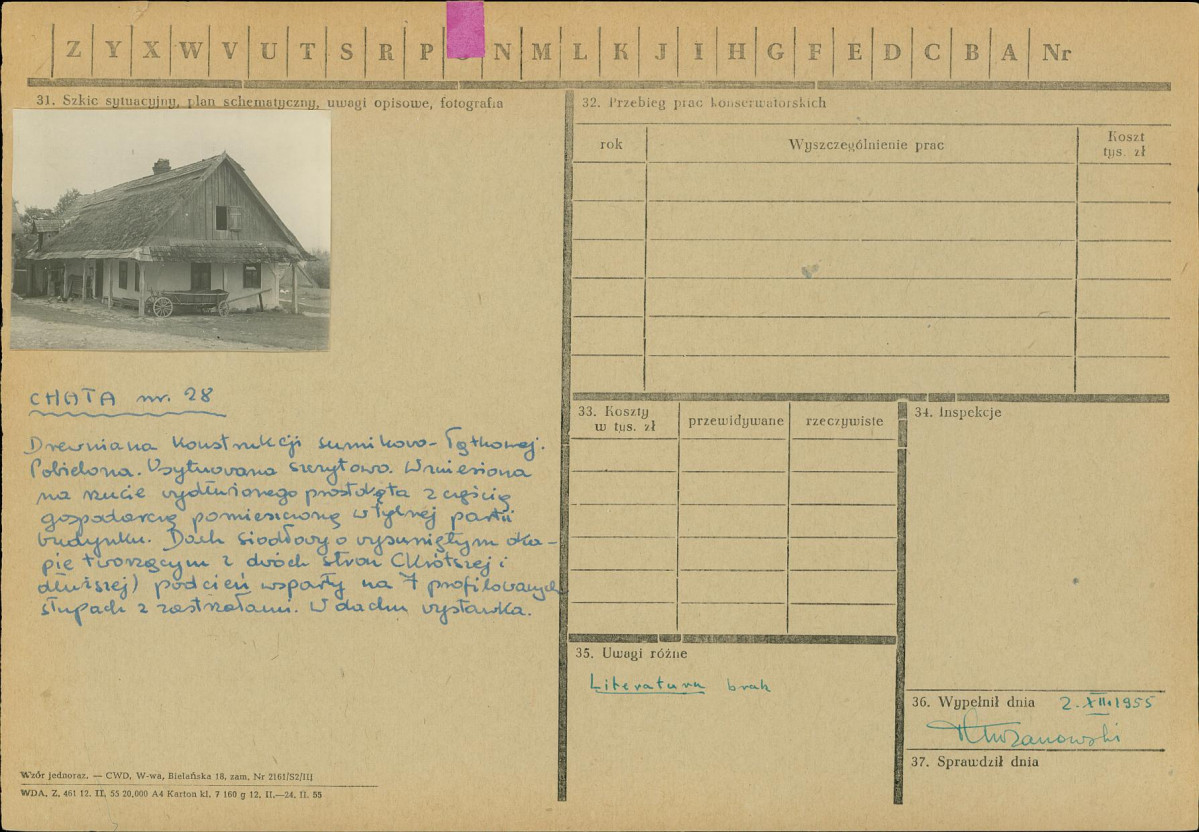 Z Y X W V U T S R P N M L K J I H G F E D C B A Nr
31. Szkic sytuacyjny, plan schematyczny, uwagi opisowe, fotografia
CHATA nr. 28
Drewniana konstrukcji sumikowo-łątkowej.
Pobielona. Usytuowana szczytowo. Wzniesiona
na rzucie wydłużonego prostokąta z częścią
gospodarczą pomieszczoną w tylnej partii
budynku. Dach siodłowy o wysuniętym oka-
pie tworzącym z dwóch stron (krótszej i
dłuższej) podcień wsparty na 7 profilowanych
słupach z zastrzałami. W dachu wystawka.
Wzór jednoraz. — CWD, W-wa, Bielańska 18, zam. Nr 2161/S2/III
WDA. Z. 461 12. II. 55 20.000 A4 Karton kl. 7 160 g 12. II.—24. II. 55
32. Przebieg prac konserwatorskich
rok Wyszczególnienie prac Koszt
tys. zł
33. Koszty
w tys. zł przewidywane rzeczywiste
34. Inspekcje
35. Uwagi różne
Literatura brak
36. Wypełnił dnia 2.XII.1955
37. Sprawdził dnia